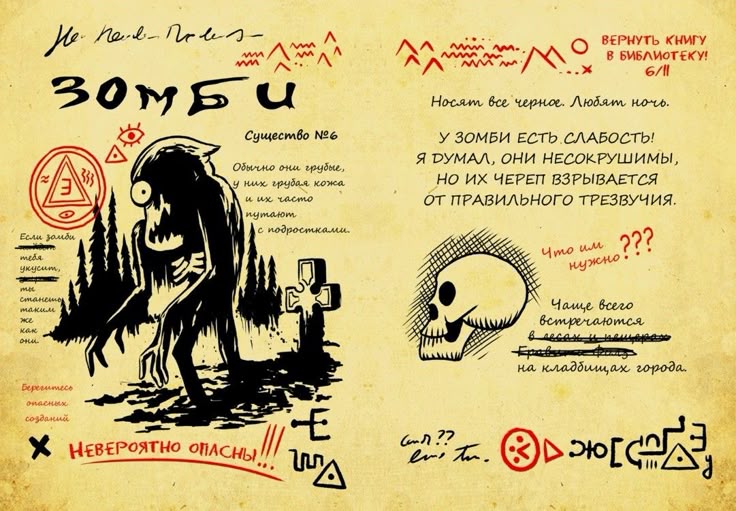 ЗОМБИ
Существо №6
Обычно они грубые,
у них грубая кожа
и их часто
путают
с подростками.
Если зомби
тебя
укусит,
ты
станешь
таким
же
как
они.
Берегитесь
опасных
созданий
НЕВЕРОЯТНО ОПАСНЫ!!!
ВЕРНУТЬ КНИГУ
В БИБЛИОТЕКУ!
6/11
Носят все черное. Любят ночь.
У ЗОМБИ ЕСТЬ СЛАБОСТЬ!
Я ДУМАЛ, ОНИ НЕСОКРУШИМЫ,
НО ИХ ЧЕРЕП ВЗРЫВАЕТСЯ
ОТ ПРАВИЛЬНОГО ТРЕЗВУЧИЯ.
Что им
нужно???
Чаще всего
встречаются
в лесах и пещерах
на кладбищах города.